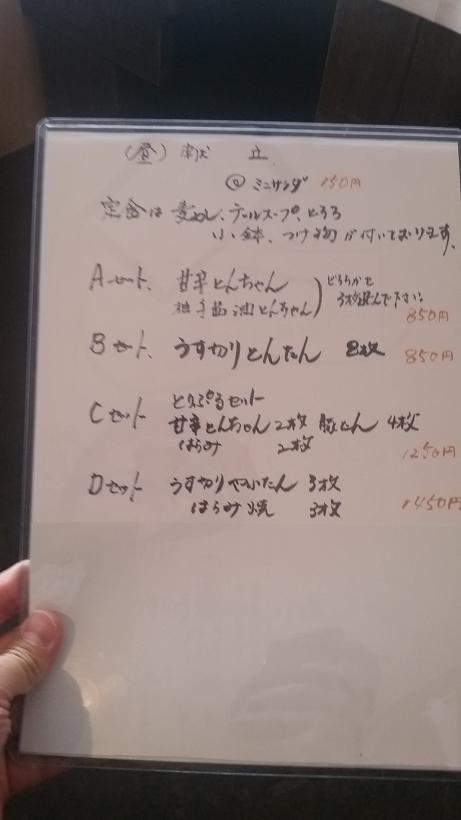 (昼) 献立
◎ミニサラダ 150円
定食は 麦めし、テールスープ、とろろ
小鉢、つけ物が付いております。
Aセット 甘辛とんちゃん
柚子醤油とんちゃん
どちらかを
3枚選んで下さい
850円
Bセット うす切りとんたん 8枚 850円
Cセット とりぷるセット
甘辛とんちゃん 2枚 豚たん 4枚
はらみ 2枚
1250円
Dセット うす切り たん 3枚
はらみ焼 3枚 1450円